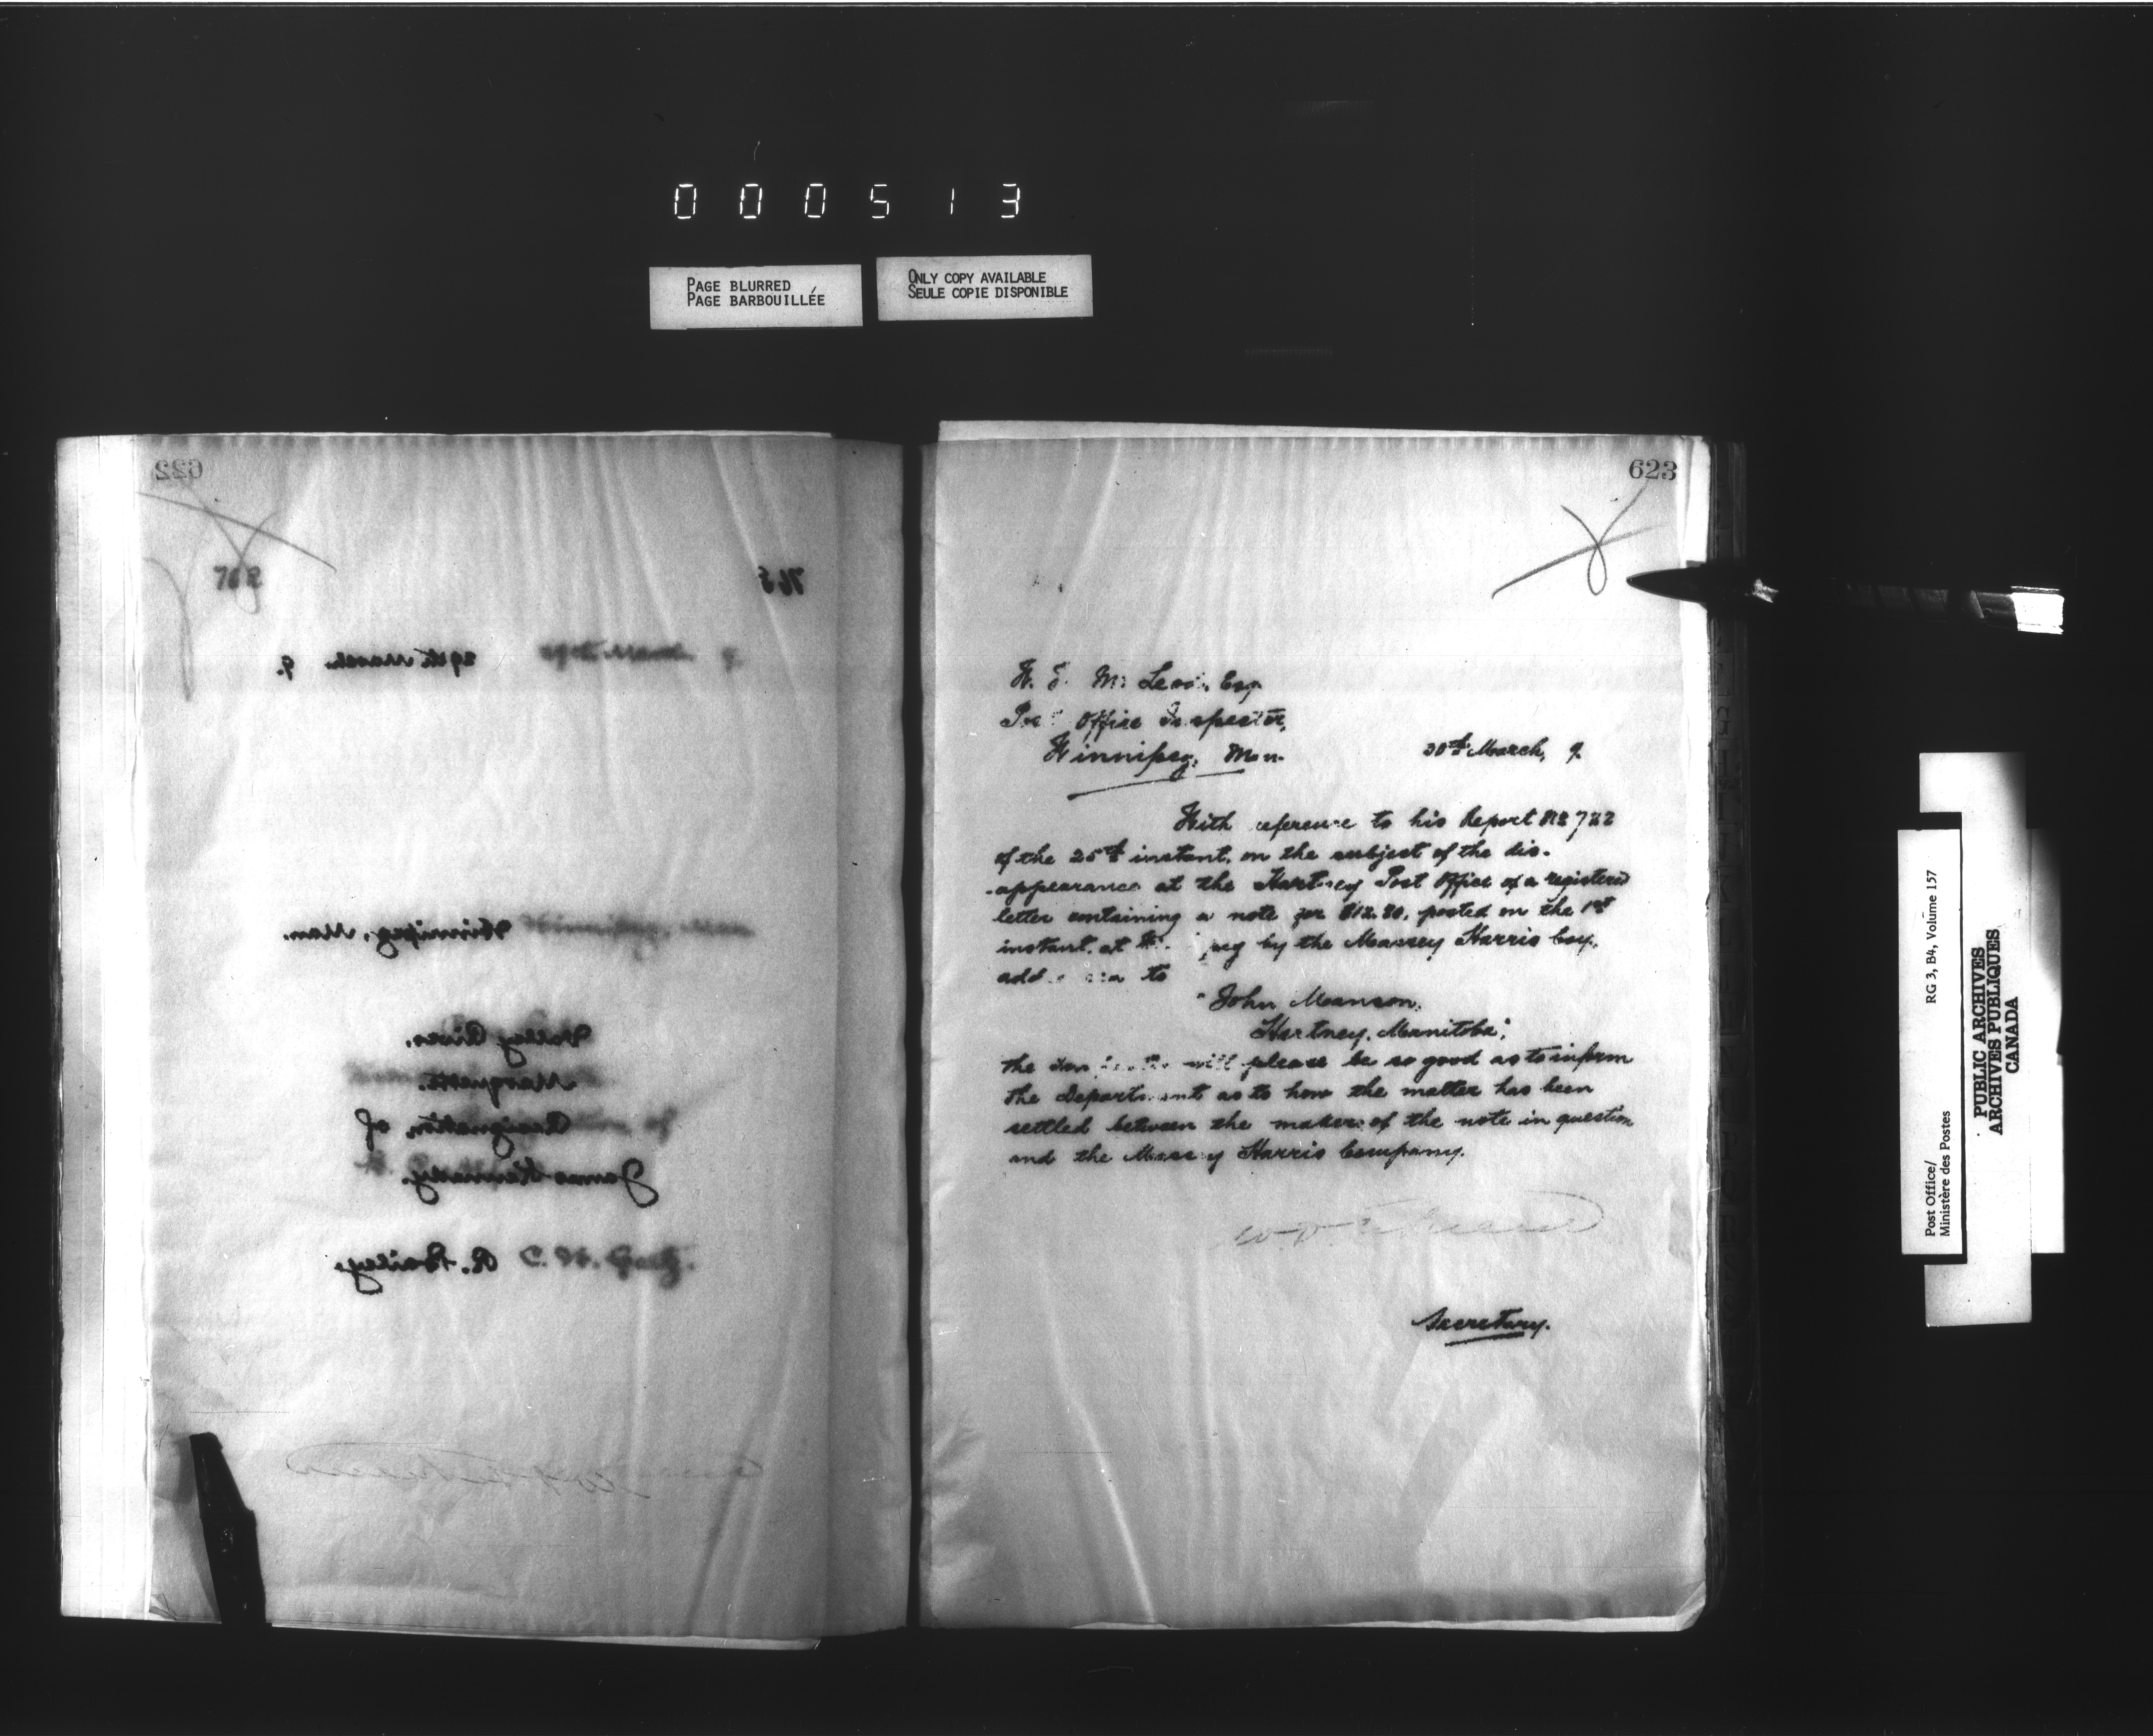 0 0 0 5 1 3
PAGE BLURRED
PAGE BARBOUILLÉE
ONLY COPY AVAILABLE
SEULE COPIE DISPONIBLE
622
762
765
29th March. 9.
29th March 9.
Winnipeg, Man.
Valley River.
Marquette.
Resignation of
James Kennedy.
R. Bailey.
623
W. Esq
Office Inspector,
Winnipeg, Man.
30th March, 9.
With reference to his Report No
of the 25th instant, on the subject of the dis-
-appearance at the Hartney Post Office of a registered
letter containing a note for $12.80, posted on the 1st
instant, at by the Massey Harris Coy.
to
"John Manson,
Hartney, Manitoba",
the will please be so good as to inform
the Department as to how the matter has been
settled between the maker of the note in question
and the Massey Harris Company.
Secretary.
Post Office/ RG 3, B4, Volume 157
Ministère des Postes
PUBLIC ARCHIVES
ARCHIVES PUBLIQUES
CANADA